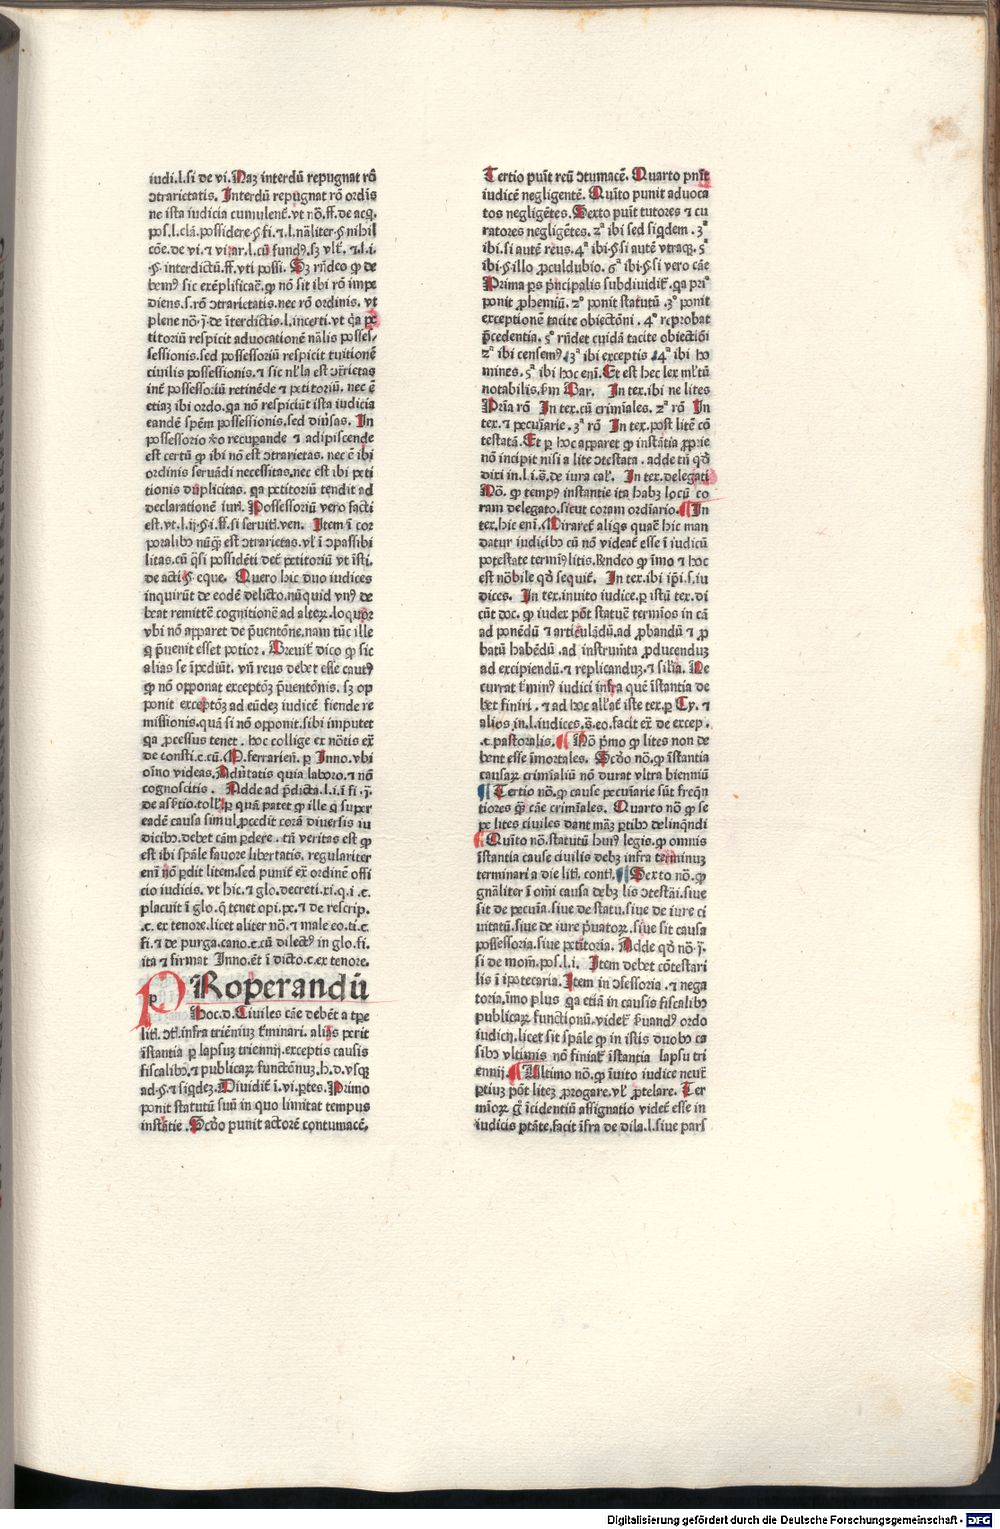 iudi.l.si de vi. Naz interdū repugnat rō
ↄtrarietatis. Interdū repugnat rō ordīs
ne ista iudicia cumulent̄. vt nō. ff. de acq.
pos. l. clā. possidere. §. fi. ⁊. l. nāliter. §. nihil
cōe. de vi. ⁊ vi. ar. l. cū fundꝰ. sꝫ vlt̄. ⁊. l. i.
§. interdictū. ff. vti possi. Sꝫ rn̄deo ꝙ de
bemꝰ sic exēplificar̄. ꝙ nō sit ibi rō impe
diens. s. rō ↄtrarietatis. nec rō ordinis. vt
plene nō. j. de īterdictis. l. incerti. vt q̄a pe
titoriū respicit aduocationē nālis posses/
sessionis. sed possessoriū respicit tuitionē
ciuilis possessionis. ⁊ sic nl̄la est ↄt̄rietas
int̄ possessoriū retinēde ⁊ petitoriū. nec ē
etiaꝫ ibi ordo. qa nō respiciūt ista iudicia
eandē spēm possessionis. sed diūsas. In
possessorio v̄o recupande ⁊ adipiscende
est certū ꝙ ibi nō est ↄtrarietas. nec ē ibi
ordinis seruādi necessitas. nec est ibi peti
tionis dūplicitas. qa petitoriū tendit ad
declarationē iurꝭ. Possessoriū vero facti
est. vt. l. ij. §. i. ff. si seruitꝭ. ven. Item ī cor
poralibꝰ nūq̄ est ↄtrarietas. vl̄ ī ↄpassibi
litas. cū q̄si possidēti det̄ petitoriū vt īsti.
de acti. §. eque. Quero hic duo iudices
inquirūt de eodē delicto. nūquid vnꝰ de
beat remittē cognitionē ad alterꝫ. loquor
vbi nō apparet de p̄uentōne. nam tūc ille
q p̄uenit esset potior. Breuit̄ dico ꝙ sic
alias se īpediūt. vn̄ reus debet esse cautꝰ
ꝙ nō opponat exceptōꝫ p̄uentōnis. sꝫ op
ponit exceptōꝫ ad eūdeꝫ iudicē fiende re
missionis. quā si nō opponit. sibi imputet
qa ꝓcessus tenet. hoc collige ex nōtis ex̄
de consti. c. cū. M. ferrarien̄. ꝑ Inno. vbi
oīno videas. Aduītatis quia laboro. ⁊ nō
cognoscitis. Adde ad p̄dicta. l. i. ī fi. j.
de asb̄tio. toll̄. ꝑ quā patet ꝙ ille q super
eadē causa simul ꝓcedit corā diuersis iu
dicibꝰ. debet cām ꝑdere. tn̄ veritas est ꝙ
est ibi spāle fauore libertatis. regulariter
eni nō ꝑdit litem. sed punit̄ ex̄ ordinē offi
cio iudicis. vt hic. ⁊ glo. decreti. xi. q. i. c.
placuit ī glo. q̄ tenet opi. pe. ⁊ de rescrip.
.c. ex tenore. licet aliter nō. ⁊ male eo. ti. c.
fi. ⁊ de purga. cano. c. cū dilectꝰ in glo. fi.
ita ⁊ firmat Inno. ēt ī dicto. c. ex tenore.
PRoperandū
Hoc. d. Ciuiles cāe debēt a tꝑe
litꝭ. ↄtꝭ. infra triēniuꝫ t̄minari. alias perit
īstantia ꝑ lapsuꝫ triennij. exceptis causis
fiscalibꝰ. ⁊ publicaꝝ functōnuꝫ. h. d. vsqꝫ
ad. §. ⁊ siqdeꝫ. Diuidit̄ ī. vi. ꝑtes. Primo
ponit statutū suū in quo limitat tempus
instātie. Scd̄o punit actorē contumacē.
Tertio pun̄it reū ↄtumacē. Quarto pnīt
iudicē negligentē. Quīto punit aduoca
tos negligētes. Sexto pun̄it tutores ⁊ cu
ratores negligētes. 2ᵃ ibi sed siqdem. 3ᵃ
ibi. si autē reus. 4ᵃ ibi. §. si autē vtraqꝫ. 5ᵃ
ibi. §. illo ꝓculdubio. 6ᵃ ibi. §. si vero cāe
Prima ꝑs p̄ncipalis subdiuidit̄. qa pri
ponit ꝓhemiū. 2ᵒ ponit statutū. 3ᵒ ponit
exceptionē tacite obiectōni. 4ᵒ reprobat
p̄cedentia. 5ᵒ rn̄det cuidā tacite obiectiōi
2ᵃ ibi censemꝰ. 3ᵃ ibi exceptis. 4ᵃ ibi ho
mines. 5ᵃ ibi hoc eni. Et est hec lex ml̄tū
notabilis. ẜm Bar. In tex. ibi ne lites
Prīa rō In tex. cū crimīales. 2ᵃ rō In
tex. ⁊ pecuīarie. 3ᵃ rō In tex. post litē cō
testatā. Et ꝑ hoc apparet ꝙ instātia ꝓprie
nō incipit nisi a lite ↄtestata. adde tn̄ qd̄
dixi in. l. i. s̄. de iura cal̄. In tex. delegati
Nō. ꝙ tempꝰ instantie ita habꝫ locū co
ram delegato. sicut coram ordīario. ¶ In
tex. hic eni. Miraret̄ aliqs quar̄ hic man
datur iudicibꝰ cū nō videat̄ esse ī iudicū
potestate termīꝰ litis. Rn̄deo ꝙ īmo ⁊ hoc
est nōbile qd̄ sequit̄. In tex. ibi ip̄i. s. iu
dices. In tex. inuito iudice. ꝑ istū tex. di
cūt doc. ꝙ iudex pōt statuē termīos in cā
ad ponēdū ⁊ articulādū. ad ꝓbandū ⁊ ꝓ
batū habēdū. ad instrum̄ta ꝓducenduꝫ
ad excipiendū. ⁊ replicanduꝫ. ⁊ sil̄ia. Ne
currat t̄minꝰ iudici infra quē īstantia de
bet finiri. ⁊ ad hoc all̄at̄ iste tex. ꝑ Cy. ⁊
alios in. l. iudices. s̄. eo. facit ex̄ de excep.
.c. pastoralis. ¶ Nō p̄mo ꝙ lites non de
bent esse īmortales. Scd̄o nō. ꝙ īstantia
causaꝝ crimīaliū nō durat vltra bienniū
¶ Tertio nō. ꝙ cause pecuīarie sūt freqn̄
tiores q̄ cāe crimīales. Quarto nō ꝙ se
pe lites ciuiles dant māꝫ ꝑtibꝰ delinqn̄di
¶ Quīto nō. statutū huiꝰ legis. ꝙ omnis
īstantia cause ciuilis debꝫ infra terminuꝫ
terminari a die litꝭ. contꝭ. ¶ Sexto nō. ꝙ
gnāliter ī om̄i causa debꝫ lis ↄtestāi. siue
sit de pecuīa. siue de statu. siue de iure ci
uitatū. siue de iure p̄uatoꝝ. siue sit causa
possessoria. siue petitoria. Adde qd̄ nō. j.
si de mom̄. pos. l. i. Item debet cōtestari
lis ī ipotecaria. Item in ↄfessoria. ⁊ nega
toria. īmo plus qa etiā in causis fiscalibꝰ
publicaꝝ functionū. videt̄ ẜuandꝰ ordo
iudicij. licet sit spāle ꝙ in istis duobꝰ ca
sibꝰ vltimis nō finiat̄ īstantia lapsu tri
ennij. ¶ Ultimo nō. ꝙ īuito iudice neut̄
ꝑtiuꝫ pōt liteꝫ ꝓrogare. vl̄ ꝓtelare. Ter
mīoꝝ g̊ īcidentiū assignatio videt̄ esse in
iudicis ptāte. facit īfra de dila. l. siue pars
Digitalisierung gefördert durch die Deutsche Forschungsgemeinschaft - DFG